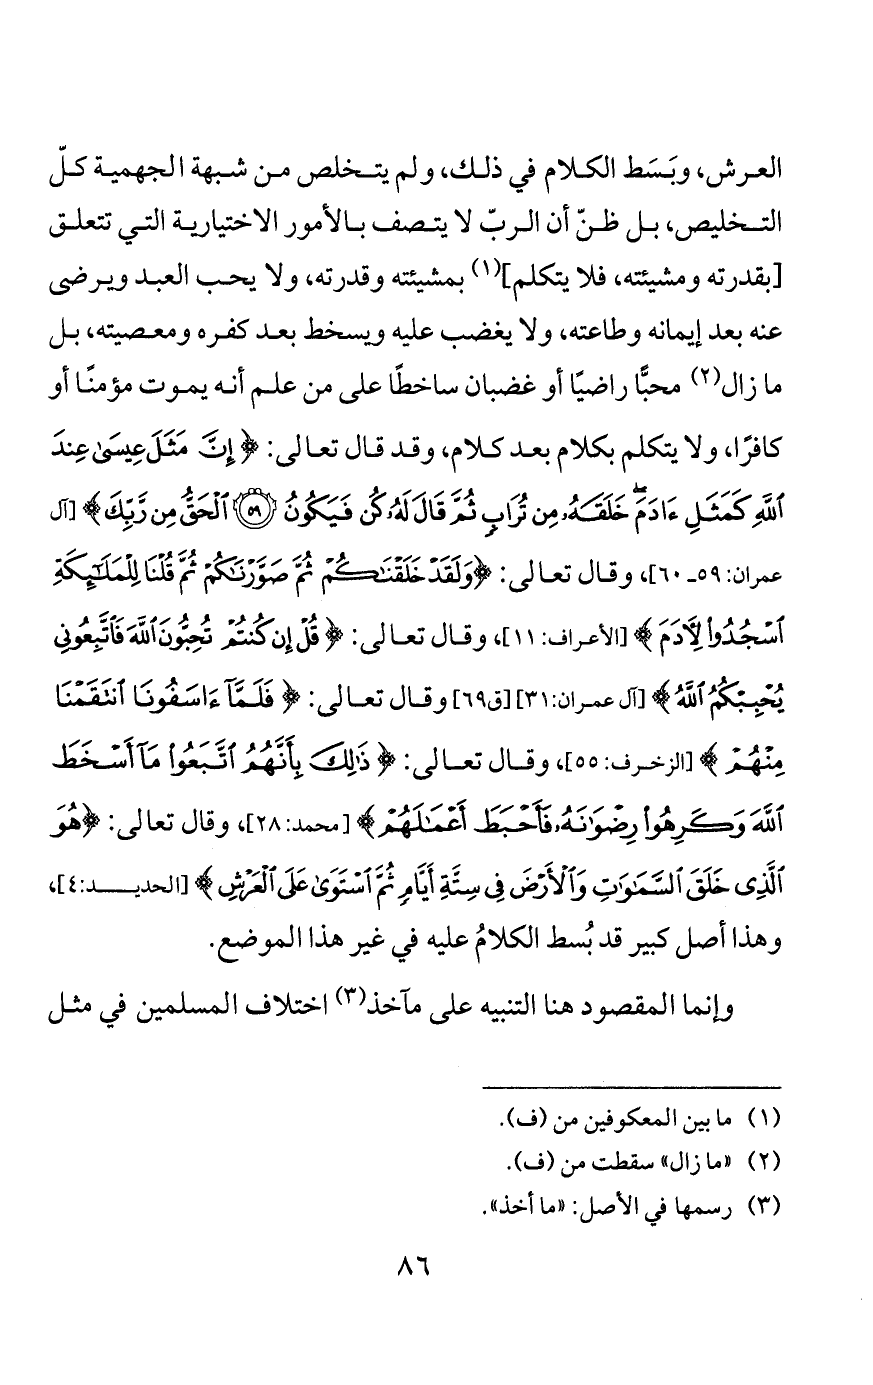 العرش، وبَسَط الكلام في ذلك، ولم يتخلص من شبهة الجهمية كلّ
التخليص، بل ظنّ أن الربّ لا يتصف بالأمور الاختيارية التي تتعلق
[بقدرته ومشيئته، فلا يتكلم](١) بمشيئته وقدرته، ولا يحب العبد ويرضى
عنه بعد إيمانه وطاعته، ولا يغضب عليه ويسخط بعد كفره ومعصيته، بل
ما زال(٢) محبًّا راضيًا أو غضبان ساخطًا على من علم أنه يموت مؤمنًا أو
كافرًا، ولا يتكلم بكلام بعد كلام، وقد قال تعالى: ﴿إِنَّ مَثَلَ عِيسَىٰ عِندَ
ٱللَّهِ كَمَثَلِ ءَادَمَۖ خَلَقَهُۥ مِن تُرَابٍ ثُمَّ قَالَ لَهُۥ كُن فَيَكُونُ ۝٥٩ ٱلْحَقُّ مِن رَّبِّكَ﴾ [آل
عمران: ٥٩ـ ٦٠]، وقال تعالى: ﴿وَلَقَدْ خَلَقْنَٰكُمْ ثُمَّ صَوَّرْنَٰكُمْ ثُمَّ قُلْنَا لِلْمَلَٰٓئِكَةِ
ٱسْجُدُوا۟ لِءَادَمَ﴾ [الأعراف: ١١]، وقال تعالى: ﴿قُلْ إِن كُنتُمْ تُحِبُّونَ ٱللَّهَ فَٱتَّبِعُونِى
يُحْبِبْكُمُ ٱللَّهُ﴾ [آل عمران:٣١] [ق٦٩] وقال تعالى: ﴿فَلَمَّآ ءَاسَفُونَا ٱنتَقَمْنَا
مِنْهُمْ﴾ [الزخرف: ٥٥]، وقال تعالى: ﴿ذَٰلِكَ بِأَنَّهُمُ ٱتَّبَعُوا۟ مَآ أَسْخَطَ
ٱللَّهَ وَكَرِهُوا۟ رِضْوَٰنَهُۥ فَأَحْبَطَ أَعْمَٰلَهُمْ﴾ [محمد:٢٨]، وقال تعالى: ﴿هُوَ
ٱلَّذِى خَلَقَ ٱلسَّمَٰوَٰتِ وَٱلْأَرْضَ فِى سِتَّةِ أَيَّامٍ ثُمَّ ٱسْتَوَىٰ عَلَى ٱلْعَرْشِ﴾ [الحديد:٤]،
وهذا أصل كبير قد بُسط الكلامُ عليه في غير هذا الموضع.
وإنما المقصود هنا التنبيه على مآخذ(٣) اختلاف المسلمين في مثل
(١) ما بين المعكوفين من (ف).
(٢) «ما زال» سقطت من (ف).
(٣) رسمها في الأصل: «ما أخذ».
٨٦